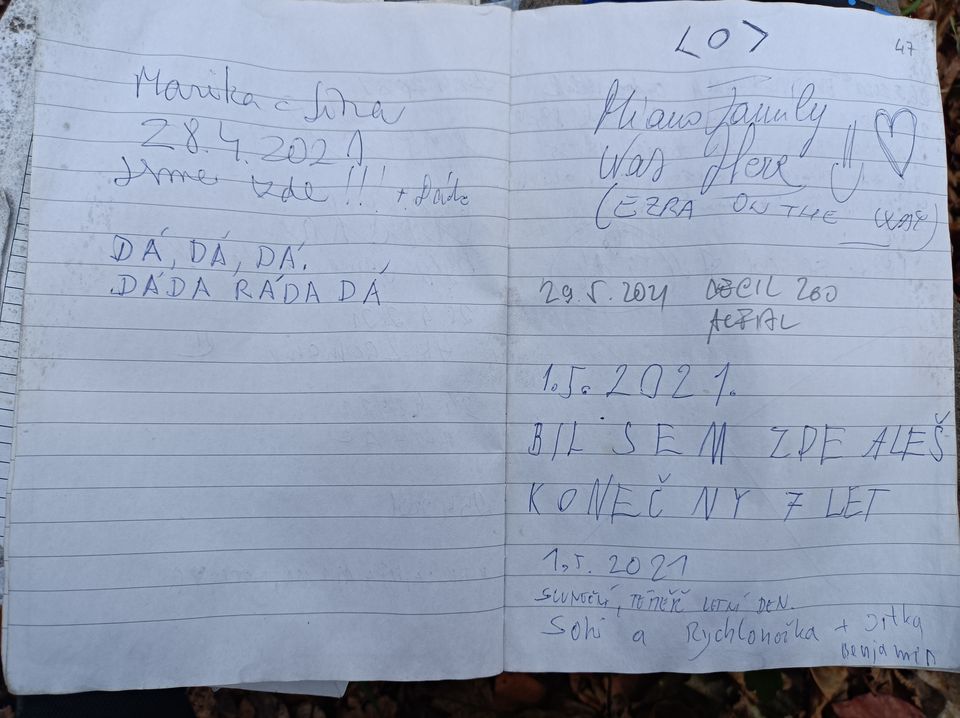 Marika a
28.4.2021
Jsme zde !!! +
DÁ, DÁ, DÁ.
DÁDA RÁDA DÁ
47
<O>
Miano Family
Was Here
(EZRA ON THE WAY)
29.5.2021
1.5.2021.
BIL SEM ZDE ALEŠ
KONEČNY 7 LET
1.5.2021
SLUNEČNÍ, TÉMĚŘ LETNÍ DEN.
Sohi a Rychlonožka + Jitka
Benjamin